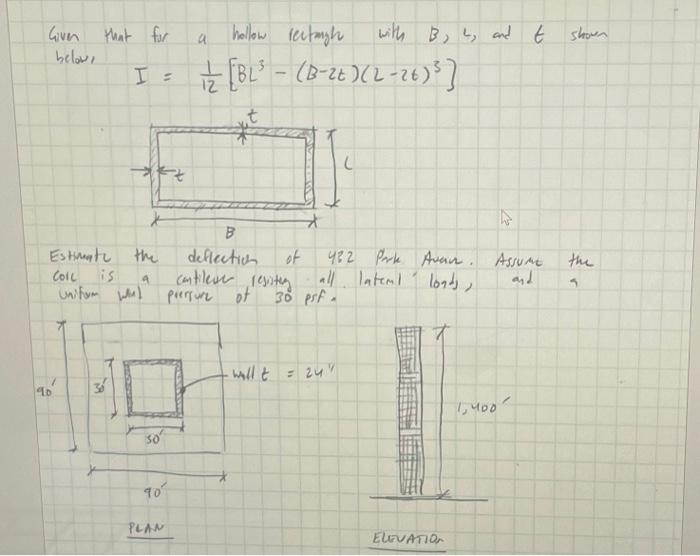 Given that for a hollow rectangle with B, L, and t shown
below,
I = 1/12 [BL³ - (B-2t)(L-2t)³]
t
t
L
B
Estimate the deflection of 432 Park Avenue. Assume the
core is a cantilever resisting all lateral loads, and a
uniform wind pressure of 30 psf.
90'
30'
wall t = 24"
30'
90'
PLAN
1,400'
ELEVATION